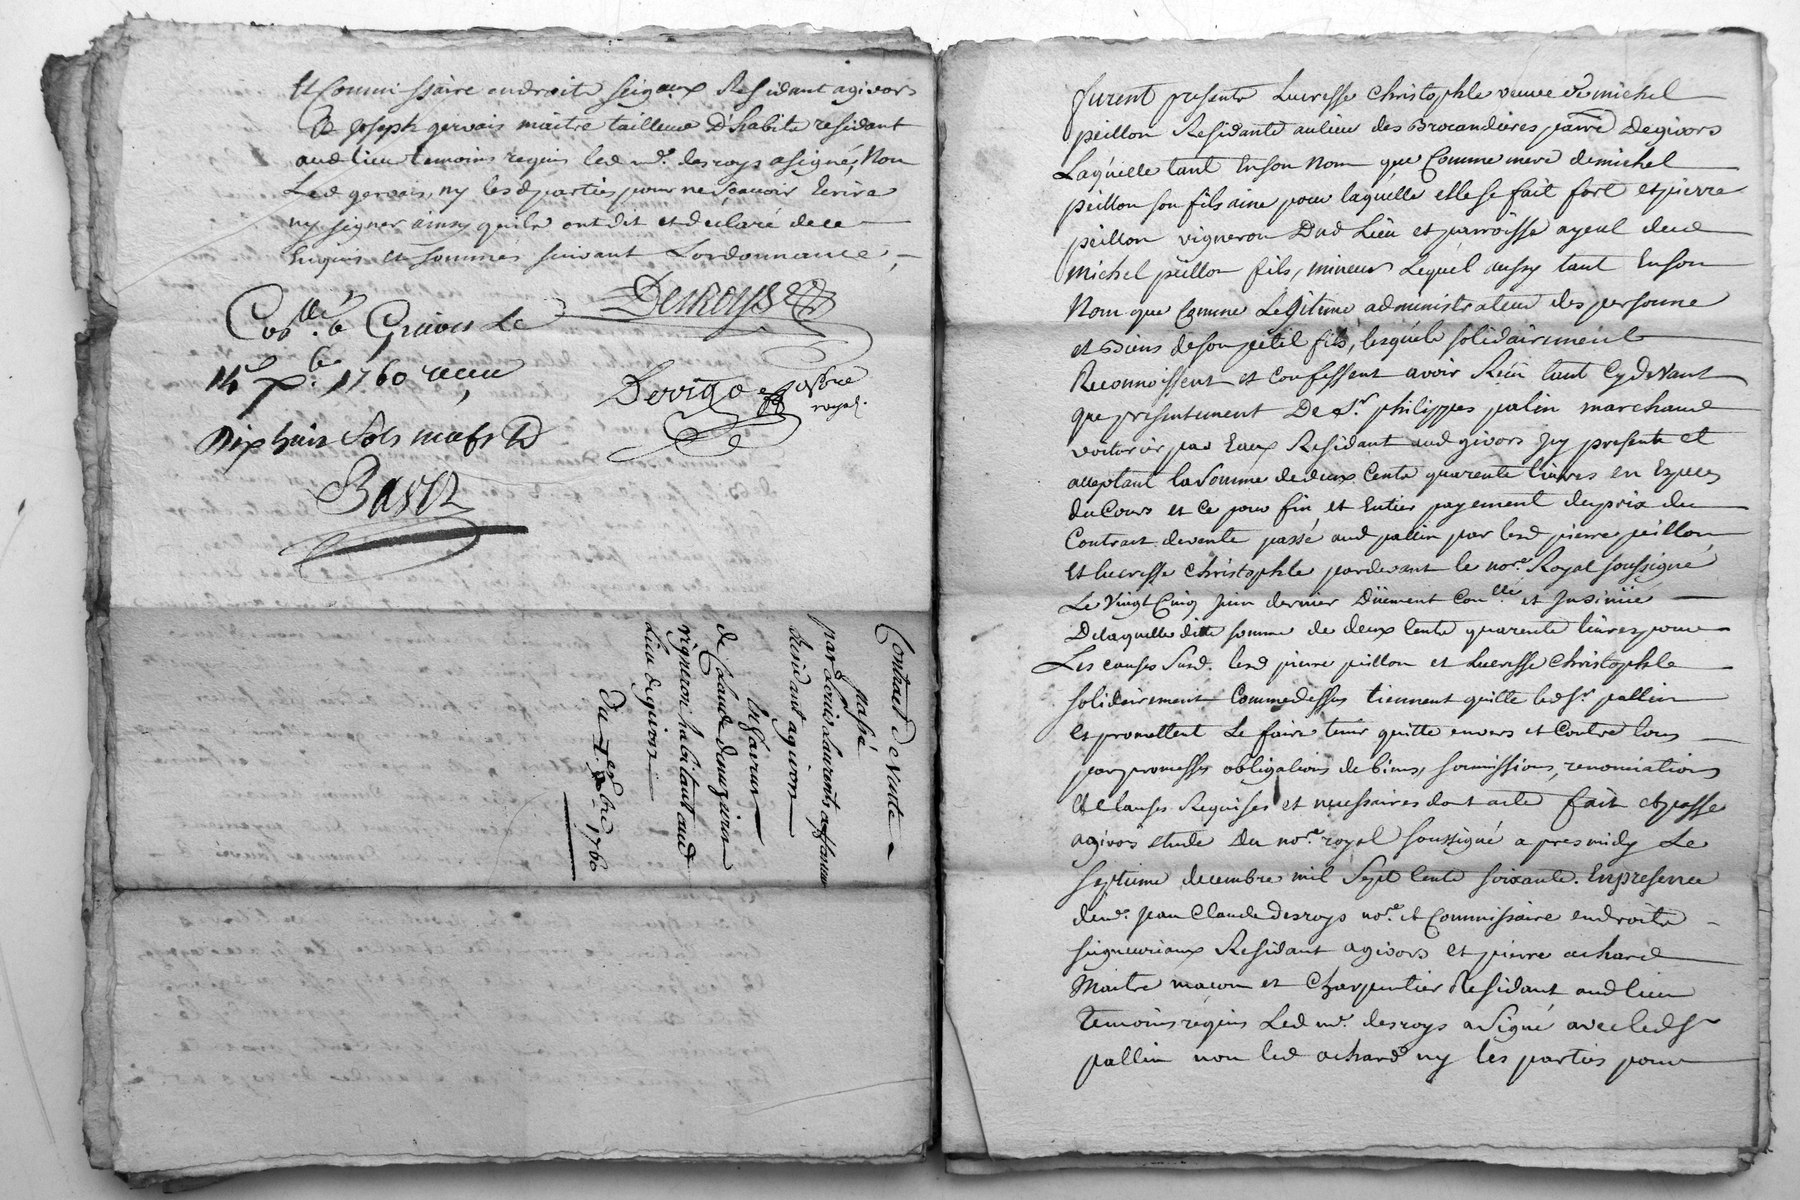 Et Commissaire en droits seigaux Residant agivors
Et Joseph gervais maitre tailleur D'habits residant
aud lieu temoins requis led me. desroys a signé, Non
Led gervais, ny lesd parties pour ne Scavoir Ecrire
ny signer ainsy quils ont dit et declaré de ce
Enquis et sommés suivant Lordonnance,
Desroys
Conllé a Givors Le
14e Xbre. 1760 receu
Dix huit Sols
Dervieo nore
royal.
Contrat de Vente
passé
par Louis Laurents affaneur
Residant agivors
En faveur
de Claude demoziere
vigneron habitant aud
Lieu de givors
Du 1er Xbre 1760
furent presents Lucresse Christophle veuve de michel
peillon Residante au lieu des Brocandieres parre Degivors
Laquelle tant En son Nom que Comme mere de michel
peillon son fils aine pour laquelle elle se fait fort et pierre
peillon vigneron Dud Lieu et parroisse ayeul dud
michel peillon fils, mineur Lequel aussy tant En son
Nom que Comme Legitime administrateur des personne
et Biens de son petit fils, lesquels solidairement
Reconnoissent et Confessent avoir Reçu tant Cy devant
que presentement De Sr. philippes palin marchand
voiturier par Eaux Residant aud givors Jcy present et
acceptant la Somme de deux Cents quarente Livres en Espèces
du Cours et Ce pour fin et Entier payement du prix du
Contrat de vente passé aud pallin par lesd pierre peillon
et lucresse Christophle pardevant le nore. Royal soussigné
Le Vingt Cinq Juin dernier Düement Conllé et Jnsinüe
De laquelle ditte somme de deux Cents quarente livres pour
Les causes Susd. lesd pierre peillon et Lucresse Christophle
solidairement Comme dessus tiennent quitte led Sr. pallin
et promettent Le faire tenir quitte envers et Contre tous
par promesses obligations de biens, soumissions, renonciations
et Clauses Requises et necessaires dont acte fait et passé
agivors Etude Du nore. royal soussigné apres midy Le
septieme decembre mil Sept Cents soixante. En presence
de me. Jean Claude desroys nore. et Commissaire en droits
seigneuriaux Residant agivors et pierre achard
Maitre maçon et Charpentier Residant aud lieu
temoins requis Led me. desroys a Signé avec led Sr
pallin non led achard ny les parties pour